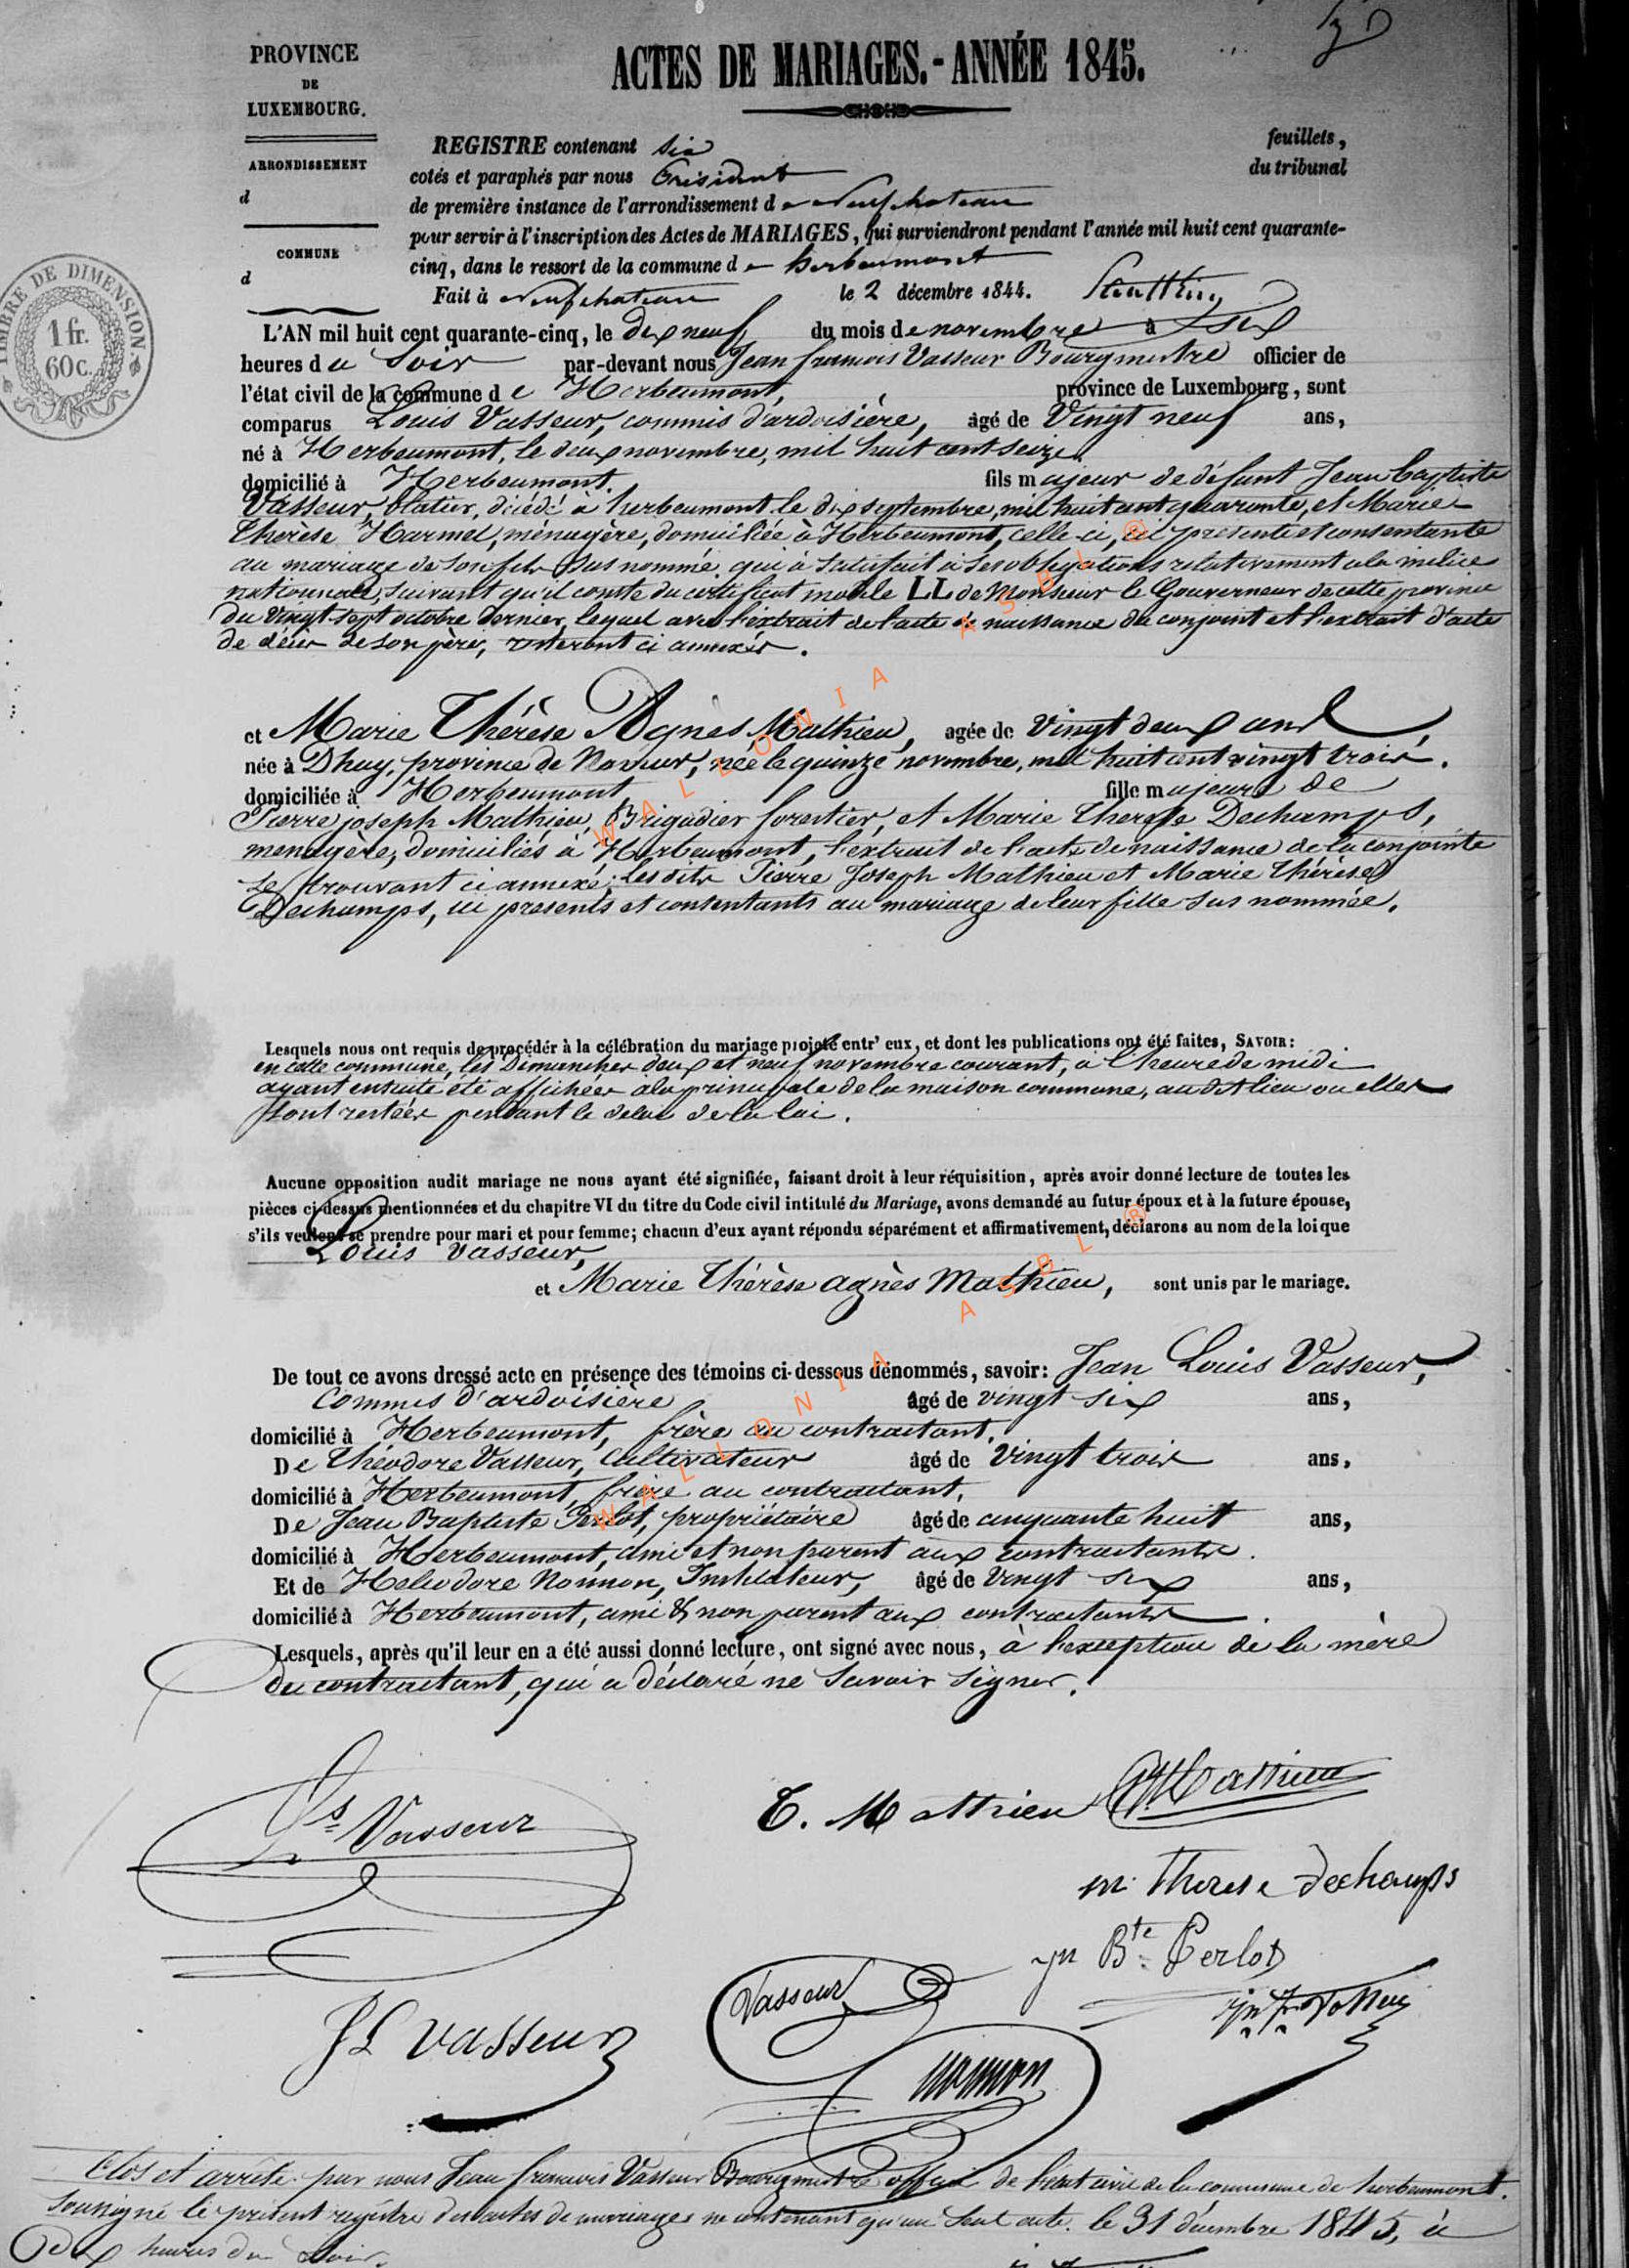 PROVINCE
DE
LUXEMBOURG.
ARRONDISSEMENT
d
COMMUNE
d
TIMBRE DE DIMENSION
1 fr.
60c.
ACTES DE MARIAGES.-ANNÉE 1845.
REGISTRE contenant six feuillets,
cotés et paraphés par nous Président du tribunal
de première instance de l'arrondissement de Neufchateau
pour servir à l'inscription des Actes de MARIAGES, qui surviendront pendant l'année mil huit cent quarante-
cinq, dans le ressort de la commune de herbeumont
Fait à Neufchateau le 2 décembre 1844.
L'AN mil huit cent quarante-cinq, le dix neuf du mois de novembre à six
heures du Soir par-devant nous Jean francois Vasseur Bourgmestre officier de
l'état civil de la commune de Herbeumont, province de Luxembourg, sont
comparus Louis Vasseur, commis d'ardoisière, âgé de Vingt neuf ans,
né à Herbeumont, le deux novembre, mil huit cent seize,
domicilié à Herbeumont. fils majeur de défunt Jean Baptiste
Vasseur, blatier, décédé à herbeumont le dix septembre, mil huit cent quarante, et Marie
Thérèse Harmel, ménagère, domiciliée à Herbeumont, celle-ci, ici présente et consentante
au mariage de son fils sus nommé, qui à satisfait à ses obligations relativement à la milice
nationnale, suivant qu'il conste du certificat modèle LL de Monsieur le Gouverneur de cette province
du Vingt sept octobre dernier, lequel avec l'extrait de l'acte de naissance du conjoint et l'extrait d'acte
de décès de son père, resteront ci annexés.
et Marie Thérèse Agnès Mathieu, agée de Vingt deux ans,
née à Dhuy, province de Namur, née le quinze novembre, mil huit cent vingt trois.
domiciliée à Herbeumont fille majeure de
Pierre joseph Mathieu, Brigadier forestier, et Marie Therese Dechamps,
menagère, domiciliés à Herbeumont, l'extrait de l'acte de naissance de la conjointe
se trouvant ci annexé; Lesdits Pierre Joseph Mathieu et Marie Thérèse
Dechamps, ici presents et contentants au mariage de leur fille sus nommée.
Lesquels nous ont requis de procéder à la célébration du mariage projeté entr' eux, et dont les publications ont été faites, SAVOIR:
en cette commune, les Dimanches deux et neuf novembre courant, à l'heure de midi
ayant ensuite été affichées à la principale de la maison commune, audit lieu ou elles
sont restées pendant le delai de la loi.
Aucune opposition audit mariage ne nous ayant été signifiée, faisant droit à leur réquisition, après avoir donné lecture de toutes les
pièces ci-dessus mentionnées et du chapitre VI du titre du Code civil intitulé du Mariage, avons demandé au futur époux et à la future épouse,
s'ils veulent se prendre pour mari et pour femme; chacun d'eux ayant répondu séparément et affirmativement, déclarons au nom de la loi que
Louis Vasseur,
et Marie Thérèse agnès Mathieu, sont unis par le mariage.
De tout ce avons dressé acte en présence des témoins ci-dessous dénommés, savoir: Jean Louis Vasseur,
Commis d'ardoisière âgé de vingt six ans,
domicilié à Herbeumont, frère au contractant.
De Théodore Vasseur, Cultivateur âgé de Vingt trois ans,
domicilié à Herbeumont, frère au contractant.
De Jean Baptiste Perlot, propriétaire âgé de cinquante huit ans,
domicilié à Herbeumont, ami et non parent aux contractants.
Et de Heliodore Noimon, Instituteur, âgé de Vingt six ans,
domicilié à Herbeumont, ami & non parent aux contractants.
Lesquels, après qu'il leur en a été aussi donné lecture, ont signé avec nous, à l'exception de la mère
du contractant, qui a déclaré ne savoir signer.
Ls Vasseur
T. Mathieu
Mathieu
m. Therese dechamps
Vasseur
jn Bte Perlot
JL vasseur
noimon
Clos et arrêté par nous Jean francois Vasseur Bourgmestre officier de l'état civil de la commune de herbeumont.
soussigné le présent registre des actes de mariages ne contenant qu'un seul acte. le 31 décembre 1845, à
deux heures du soir.
WALLONIA ASBL ®
WALLONIA ASBL ®